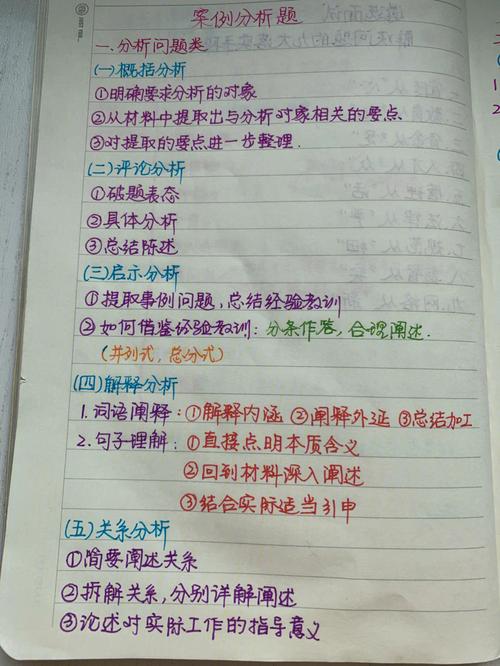 案例分析题
一、分析问题类
(一)概括分析
①明确要求分析的对象
②从材料中提取出与分析对象相关的要点、
③对提取的要点进一步整理.
(二)评论分析
①破题表态
②具体分析
③总结陈述
(三)启示分析
①提取事例问题,总结经验教训
②如何借鉴经验教训:分条作答,合理阐述.
(并列式,总分式)
(四)解释分析
1.词语阐释:①解释内涵 ②阐释外延 ③总结加工
2.句子理解:①直接点明本质含义
②回到材料深入阐述
③结合实际适当引申
(五)关系分析
①简要阐述关系
②拆解关系,分别详解阐述
③论述对实际工作的指导意义